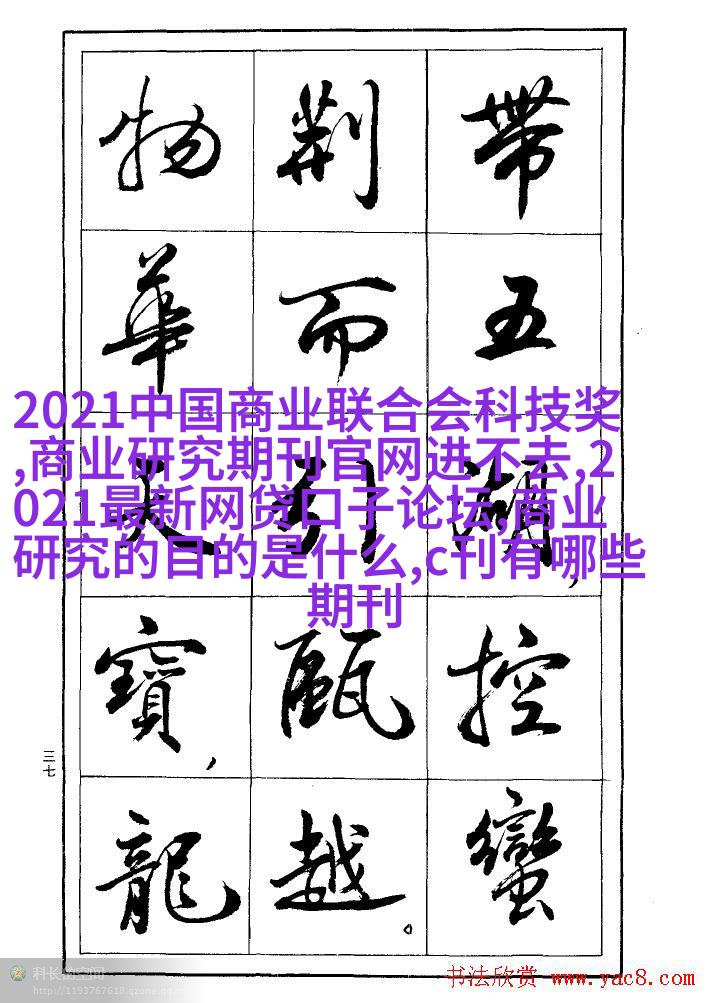 帶五湖,控蠻
荊而引甌越。
物華天寶,龍
2021中国商业联合会科技奖
,商业研究期刊官网进不去,2
021最新网贷口子论坛,商业
研究的目的是什么,c刊有哪些
期刊
三七
科长的空间
http://1193767618.qzone.qq.com
书法欣赏 www.yac8.com